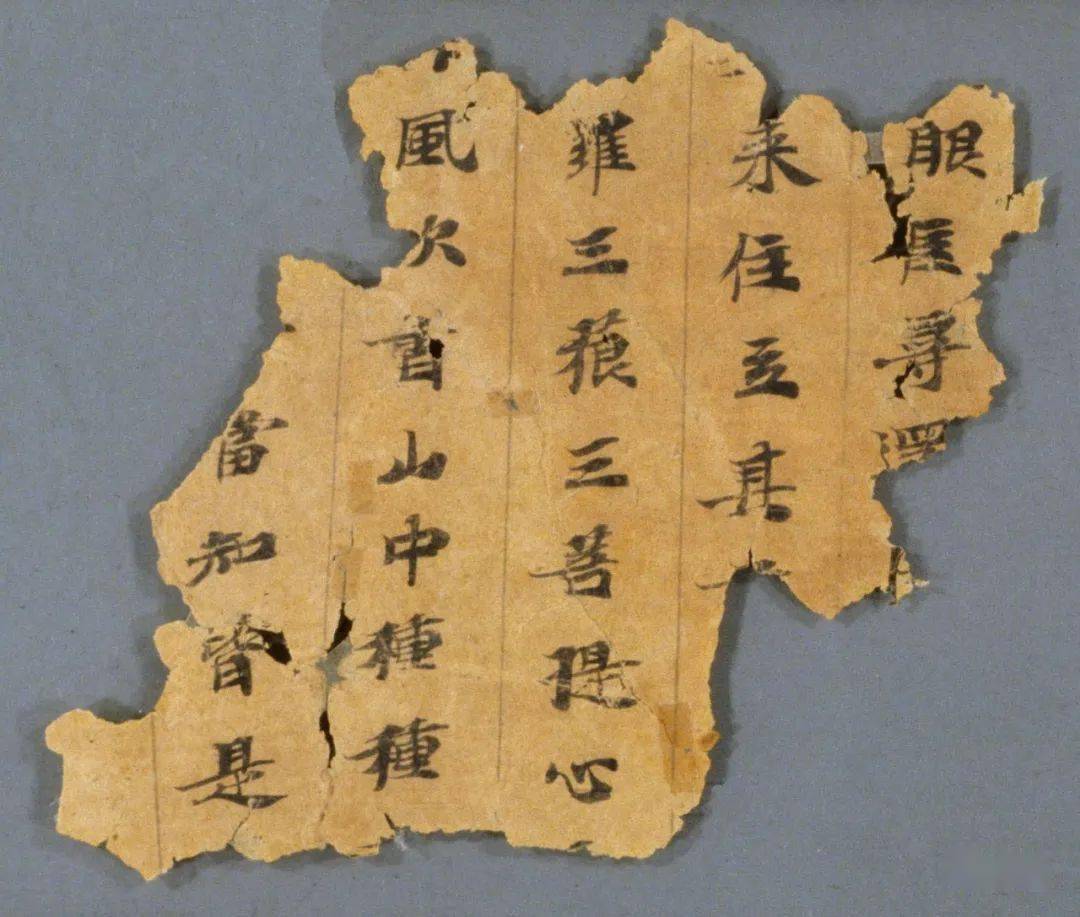 眼尋
来住立其
羅三藐三菩提心
風火香山中種種
當知皆是